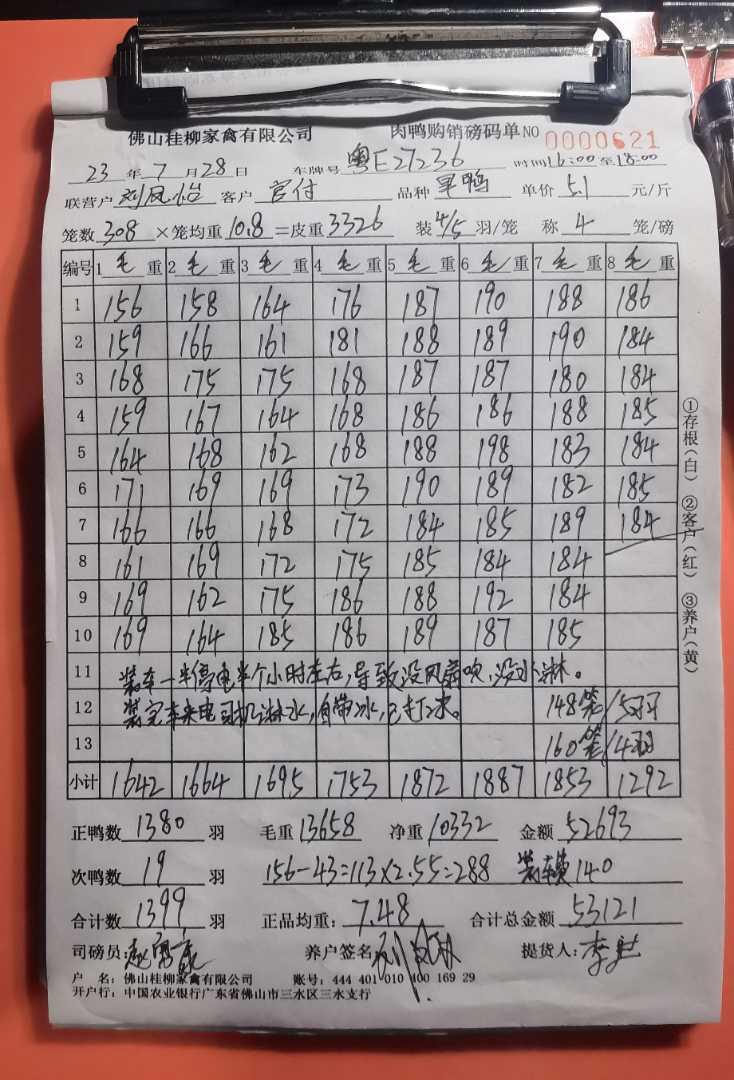 佛山桂柳家禽有限公司 肉鸭购销磅码单NO 0000621
23 年 7 月 28 日 车牌号 粤E27236 时间16:00至18:00
联营户 刘凤怡 客户 官付 品种 单鸭 单价 5.1 元/斤
笼数 308 ×笼均重 10.8 =皮重 3326 装 4/5 羽/笼 称 4 笼/磅
编号 1 毛 重 2 毛 重 3 毛 重 4 毛 重 5 毛 重 6 毛 重 7 毛 重 8 毛 重
1 156 158 164 176 187 190 188 186
2 159 166 161 181 188 189 190 184
3 168 175 175 168 187 187 180 184
4 159 167 164 168 186 186 188 185
5 164 168 162 168 188 198 183 184
6 171 169 169 173 190 189 182 185
7 166 166 168 172 184 185 189 184
8 161 169 172 175 185 184 184
9 169 162 175 186 188 192 184
10 169 164 185 186 189 187 185
11 装车一半停电半个小时左右,导致没风扇吹,没水淋。
12 装完车来电司机淋水,自带冰,已打冰。 148笼/5羽
13 160笼/4羽
小计 1642 1664 1695 1753 1872 1887 1853 1292
正鸭数 1380 羽 毛重 13658 净重 10332 金额 52693
次鸭数 19 羽 156-43=113×2.55=288 装车费140
合计数 1399 羽 正品均重: 7.48 合计总金额 53121
司磅员: 养户签名 提货人:
户 名: 佛山桂柳家禽有限公司 账号: 444 401 010 400 169 29
开户行: 中国农业银行广东省佛山市三水区三水支行
①存根(白) ②客户(红) ③养户(黄)